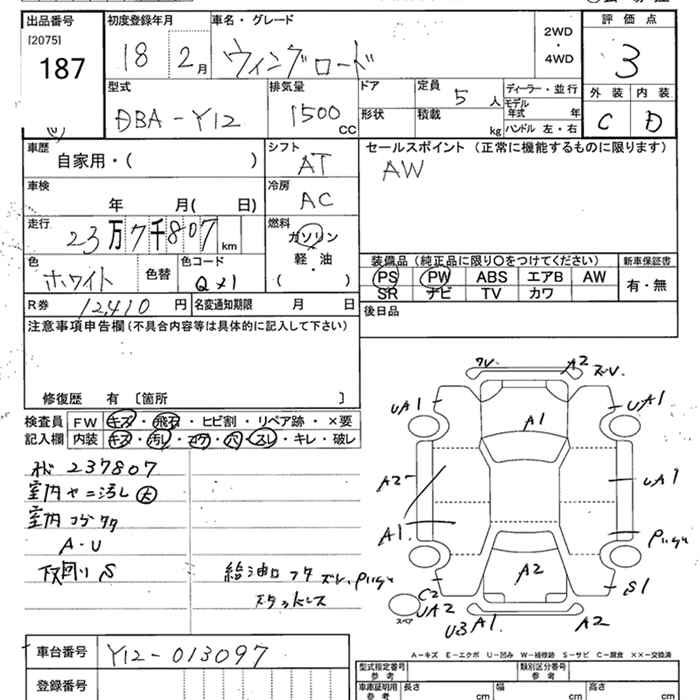 出品番号 初度登録年月 車名・グレード 評価点
[2075]
187
18 2月 ウィングロード 2WD ・ 4WD 3
型式 排気量 ドア 定員 5 人 ディーラー・並行 外装 内装
DBA-Y12 1500 CC 形状 積載 kg モデル年式 年 C D
ハンドル 左・右
車歴 シフト セールスポイント (正常に機能するものに限ります)
自家用・( ) AT AW
車検 冷房
年 月( 日) AC
走行 燃料
23万7千807 km ガソリン
軽・油
( )
色 色替 色コード 装備品 (純正品に限り○をつけてください) 新車保証書
ホワイト QX1 PS PW ABS エアB AW 有・無
SR ナビ TV カワ
R券 12,410 円 名変通知期限 月 日 後日品
注意事項申告欄 (不具合内容等は具体的に記入して下さい)
修復歴 有 〔箇所 〕
検査員記入欄 FW キズ・飛石・ヒビ割・リペア跡・×要
内装 キズ・汚し・コゲ・穴・スレ・キレ・破レ
237807
室内ヤニ汚し 大
室内コゲ
A・U
下回りS
給油口フタ ズレ
スタッドレス
ワレ A2 ズレ
UA1 UA1
A1
A2 UA1
A1
A2
C2 UA2 S1
スペア
U3 A1 A2
A-キズ E-エクボ U-凹み W-補修跡 S-サビ C-腐食 ××-交換済
車台番号 Y12-013097
型式指定番号 参考 類別区分番号 参考
登録番号 車庫証明用 参考 長さ cm 幅 cm 高さ cm